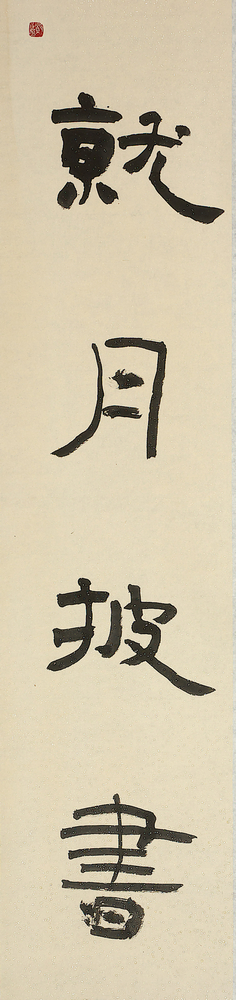 就月披書